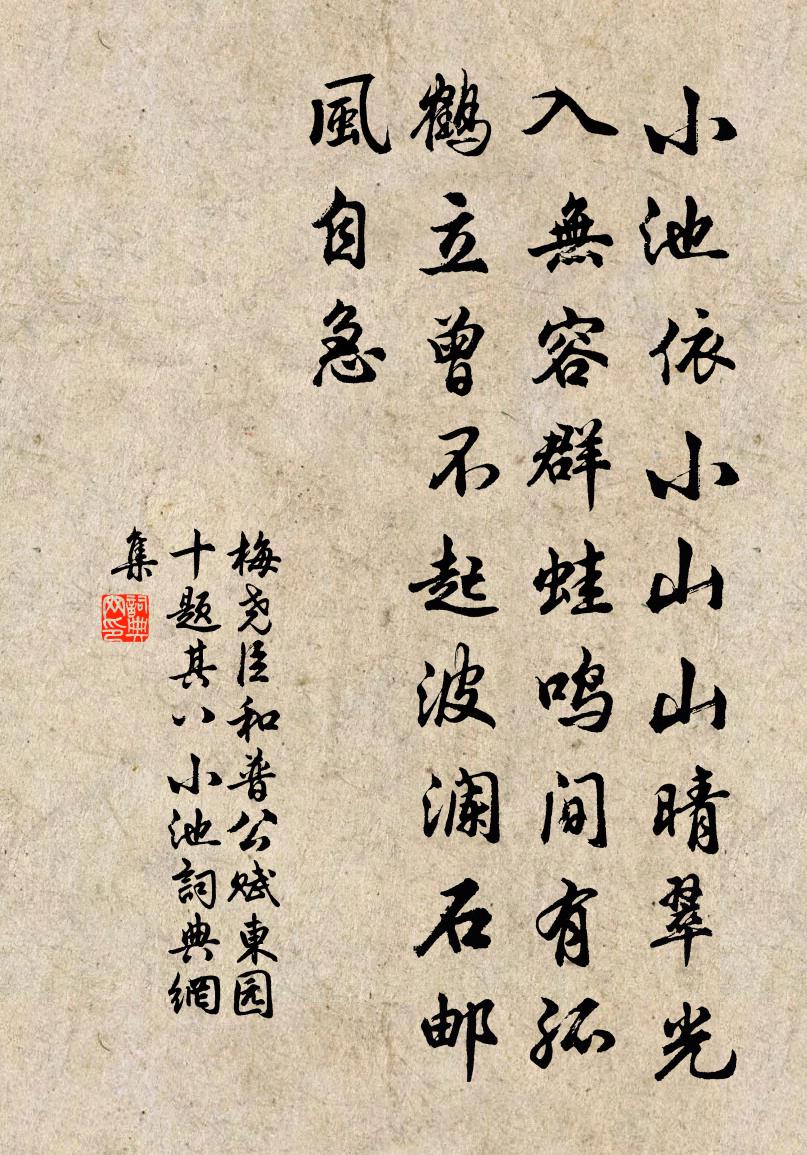 小池依小山山晴翠光
入無容群蛙鸣間有孤
鶴立曾不起波澜石邮
風自急
梅尧臣和普公赋東园
十题其八小池詞典網
集
詞典
网印